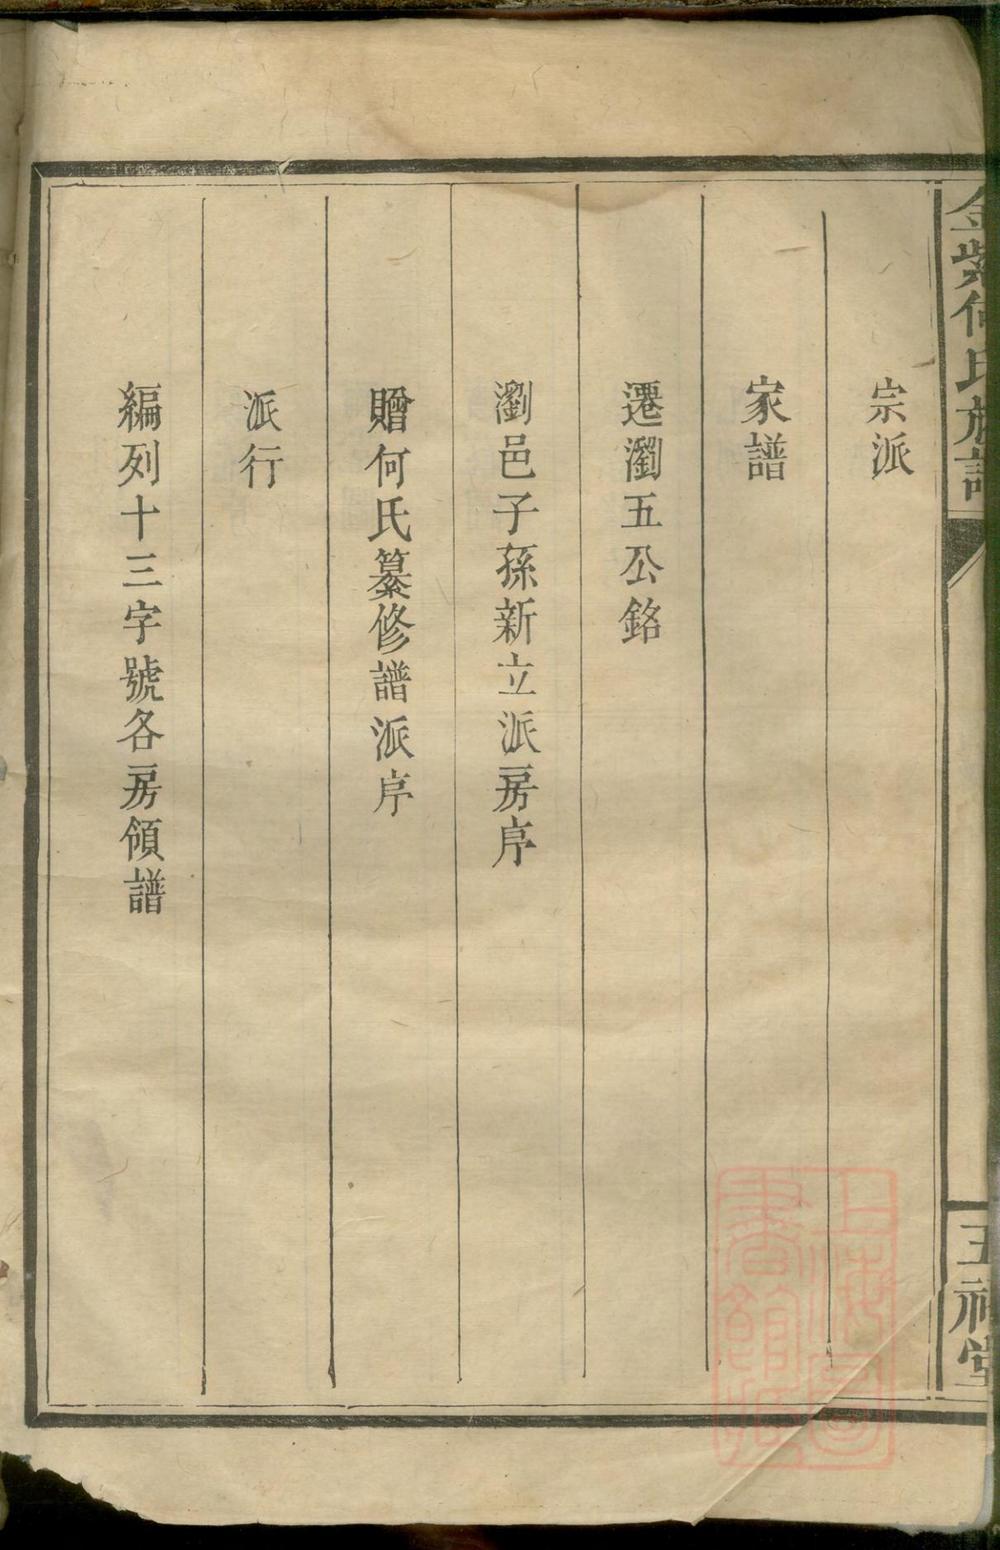 金紫何氏族譜
宗派
家譜
遷瀏五公銘
瀏邑子孫新立派房序
贈何氏纂修譜派序
派行
編列十三字號各房領譜
上海圖書館藏